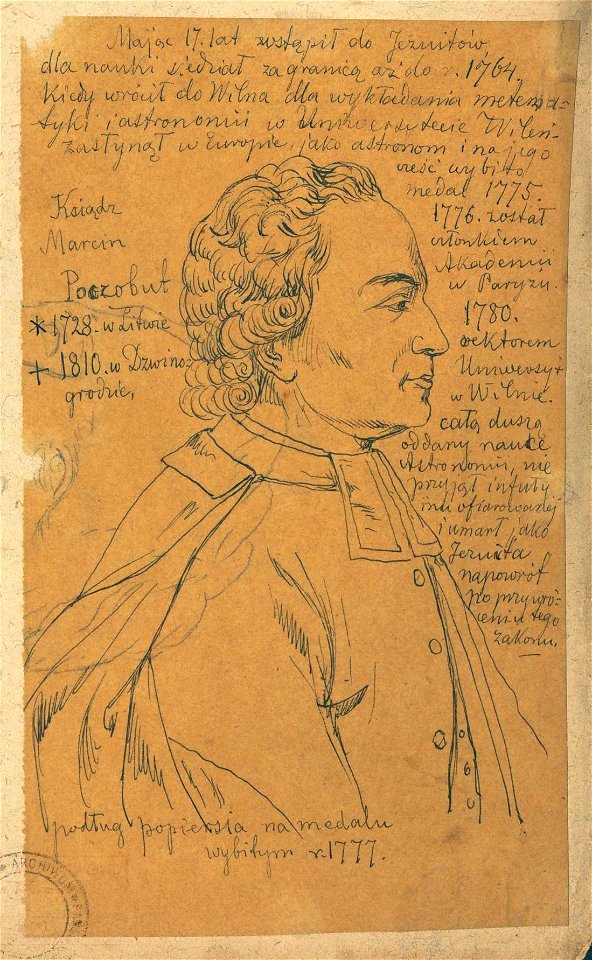 Mając 17. lat wstąpił do Jezuitów,
dla nauki siedział za granicą aż do r. 1764.
kiedy wrócił do Wilna dla wykładania metema-
tyki i astronomii w Uniwersytecie Wileń-
zasłynął w Europie, jako astronom i na jego
cześć wybito
medal 1775.
1776. został
członkiem
Akademii
w Paryżu.
1780.
rektorem
Uniwersyt
w Wilnie.
całą duszą
oddany nauce
Astronomii, nie
przyjął infuły
mu ofiarowanej
i umarł jako
Jezuita
napowrót
po przywró-
ceniu tego
zakonu.
Ksiądz
Marcin
Poczobut
* 1728. w Litwie
+ 1810. w Dzwino-
grodzie,
podług popiersia na medalu
wybitym r. 1777.
ARCHIWUM